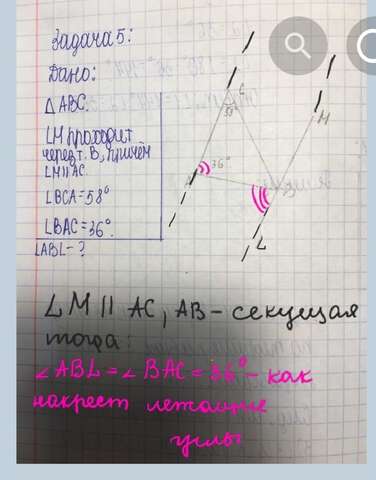 Задача 5:
Дано:
△ ABC.
LM проходит
через т. B, причём
LM || AC.
∠BCA = 58°
∠BAC = 36°.
∠ABL - ?
C
58°
M
A
36°
L
LM || AC, AB - секущая
тогда:
∠ABL = ∠BAC = 36° - как
накрест лежащие
углы